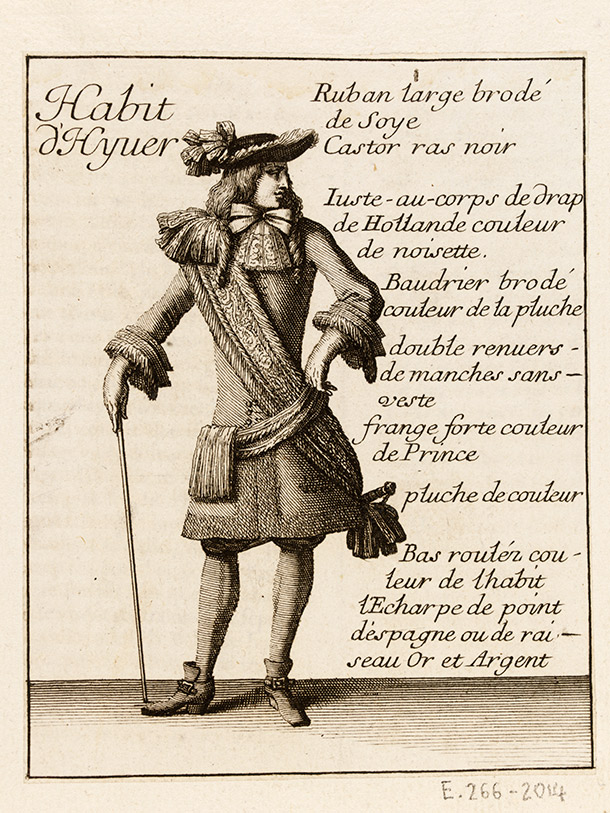 Habit
d'Hyuer
Ruban large brodé
de Soye
Castor ras noir
Iuste-au-corps de drap
de Hollande couleur
de noisette.
Baudrier brodé
couleur de la pluche
double renuers-
de manches sans-
veste
frange forte couleur
de Prince
pluche de couleur
Bas rouléz cou-
leur de lhabit
lEcharpe de point
d'espagne ou de rai-
seau Or et Argent
E.266-2014